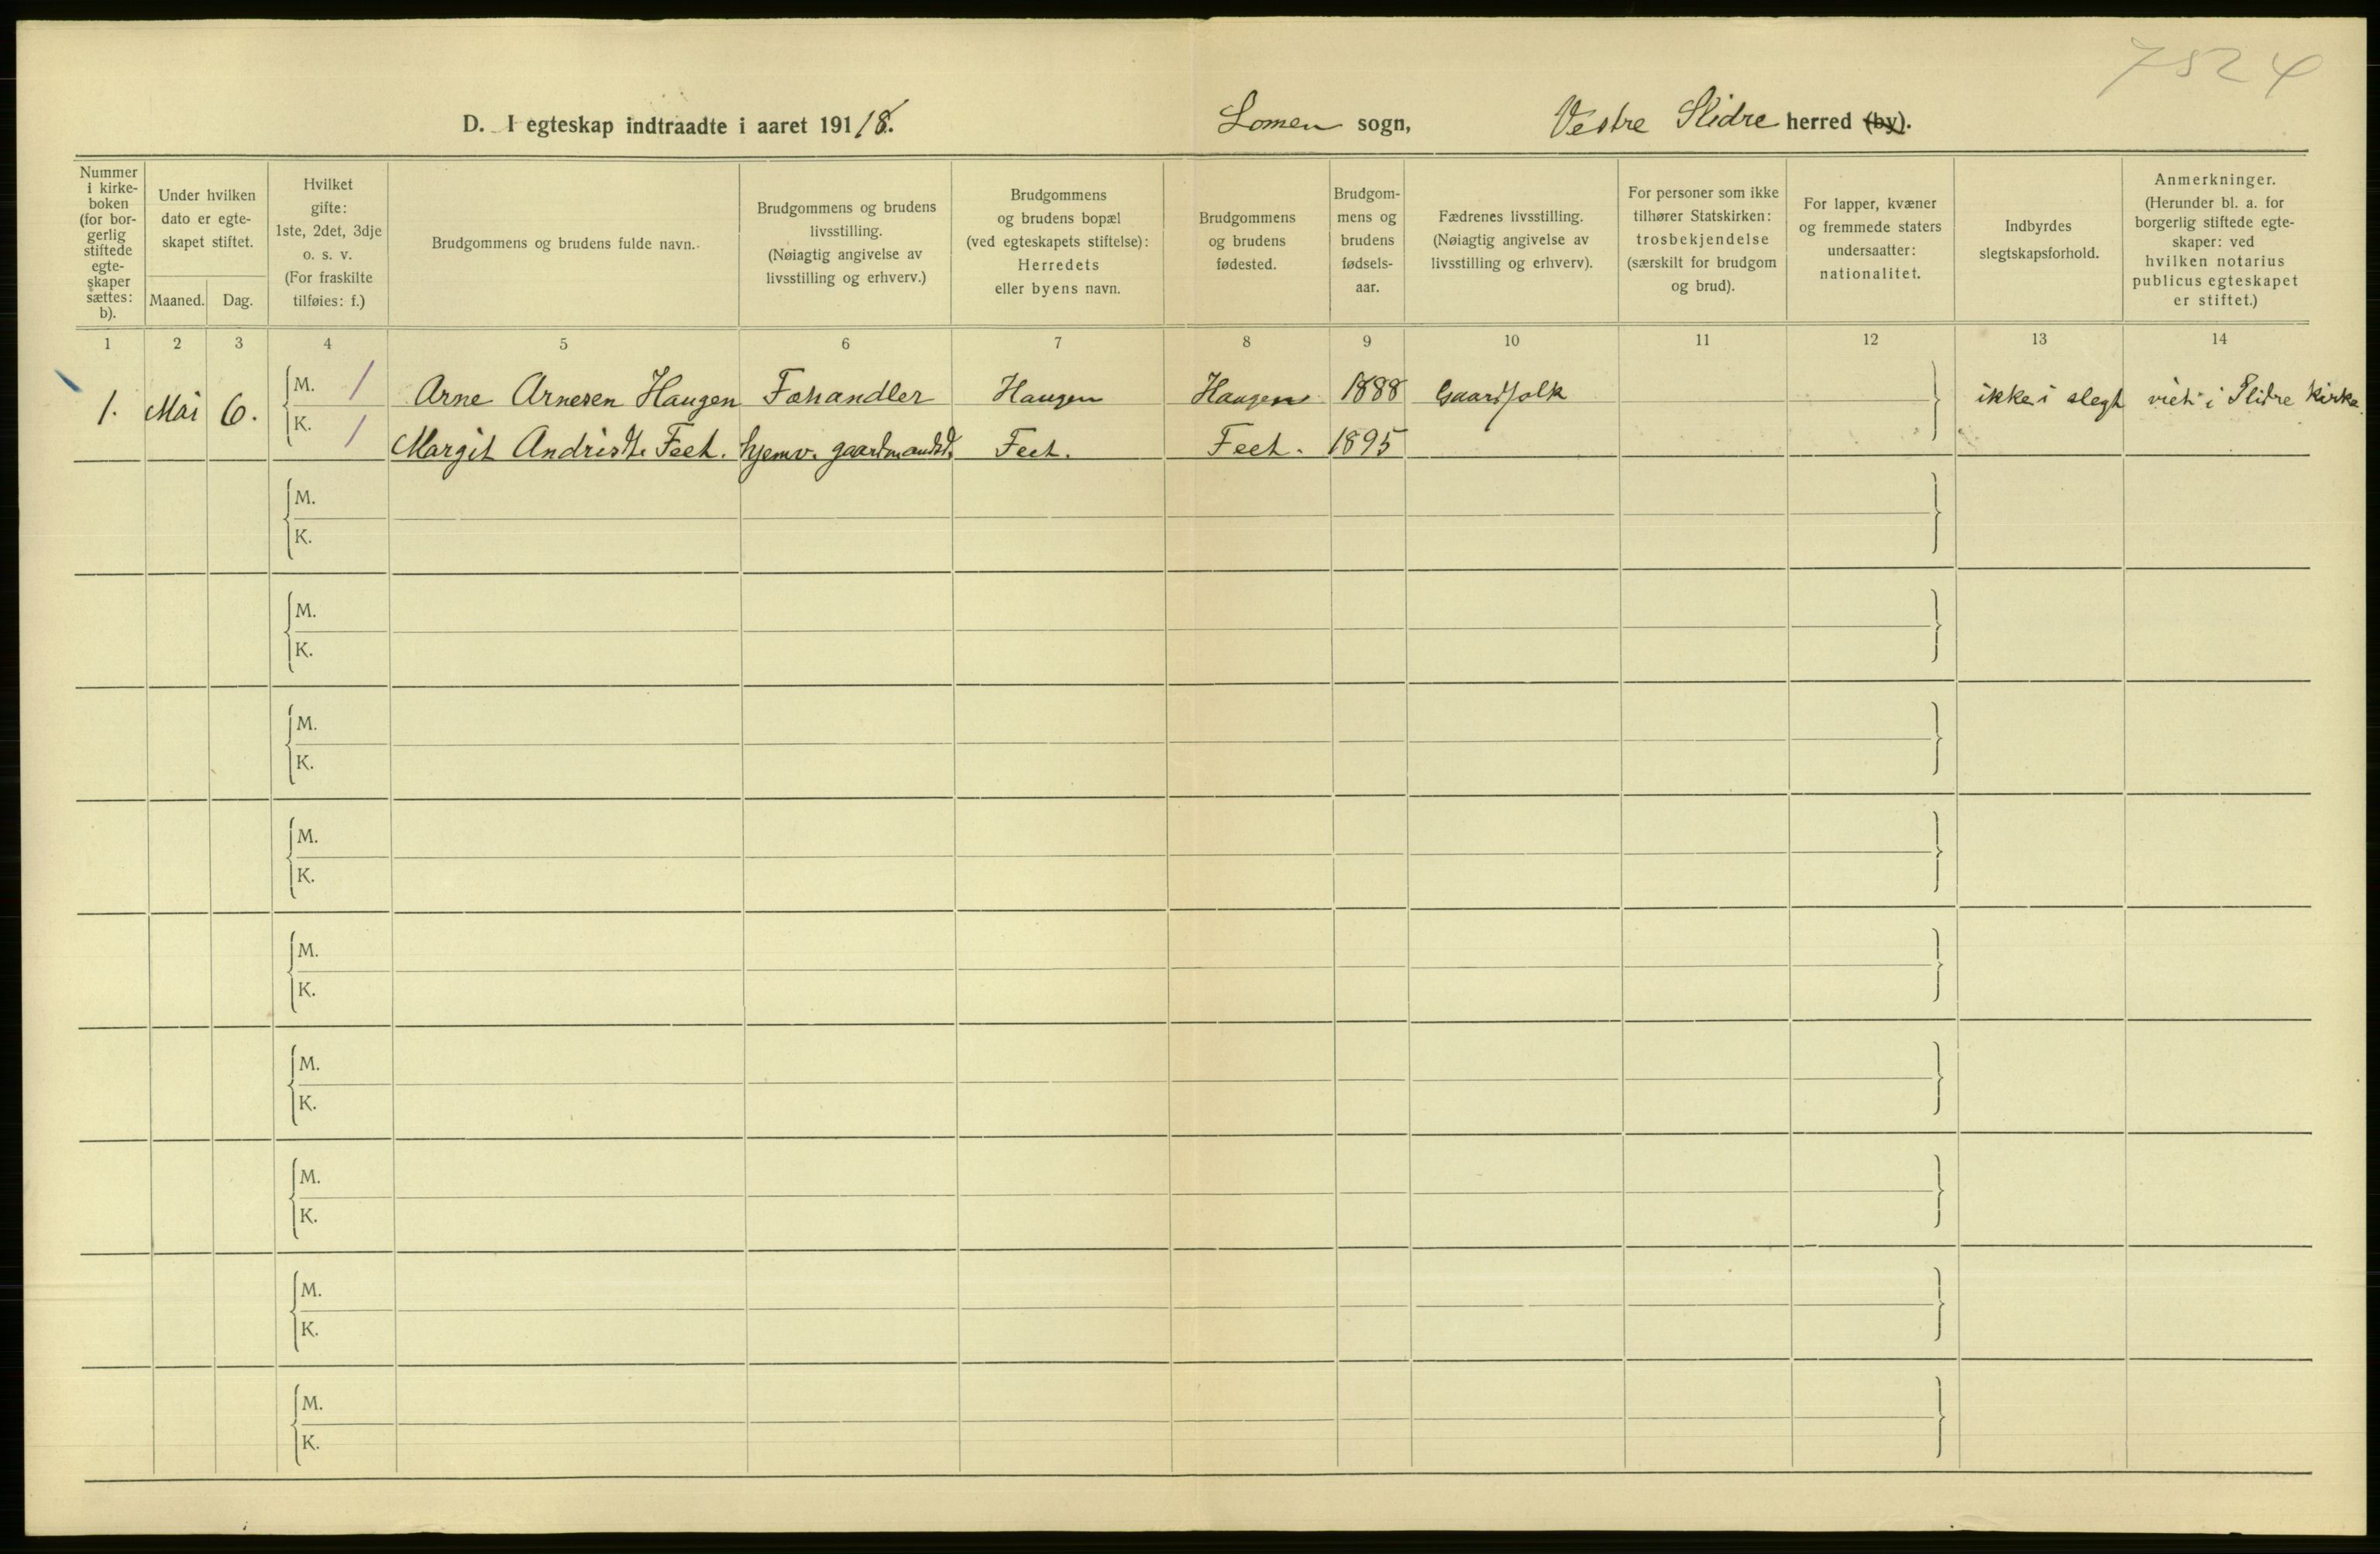 7524
D. I egteskap indtraadte i aaret 191 18. Lomen sogn, Vestre Slidre herred (by).
Nummer
i kirke-
boken
(for bor-
gerlig
stiftede
egte-
skaper
sættes:
b).
Under hvilken
dato er egte-
skapet stiftet.
Maaned. Dag.
Hvilket
gifte:
1ste, 2det, 3dje
o. s. v.
(For fraskilte
tilføies: f.)
Brudgommens og brudens fulde navn.
Brudgommens og brudens
livsstilling.
(Nøiagtig angivelse av
livsstilling og erhverv.)
Brudgommens
og brudens bopæl
(ved egteskapets stiftelse):
Herredets
eller byens navn.
Brudgommens
og brudens
fødested.
Brudgom-
mens og
brudens
fødsels-
aar.
Fædrenes livsstilling.
(Nøiagtig angivelse av
livsstilling og erhverv).
For personer som ikke
tilhører Statskirken:
trosbekjendelse
(særskilt for brudgom
og brud).
For lapper, kvæner
og fremmede staters
undersaatter:
nationalitet.
Indbyrdes
slegtskapsforhold.
Anmerkninger.
(Herunder bl. a. for
borgerlig stiftede egte-
skaper: ved
hvilken notarius
publicus egteskapet
er stiftet.)
1 2 3 4 5 6 7 8 9 10 11 12 13 14
1. Mai 6. M. 1 Arne Arnesen Haugen Fæhandler Haugen Haugen 1888 Gaardfolk ikke i slegt viet i Slidre Kirke.
K. 1 Margit Andrisdt. Feet. hjemv. gaardmandsd. Feet. Feet. 1895
M.
K.
M.
K.
M.
K.
M.
K.
M.
K.
M.
K.
M.
K.
M.
K.
M.
K.